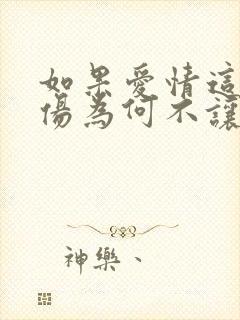 如果愛情這
傷為何不讓
神樂、